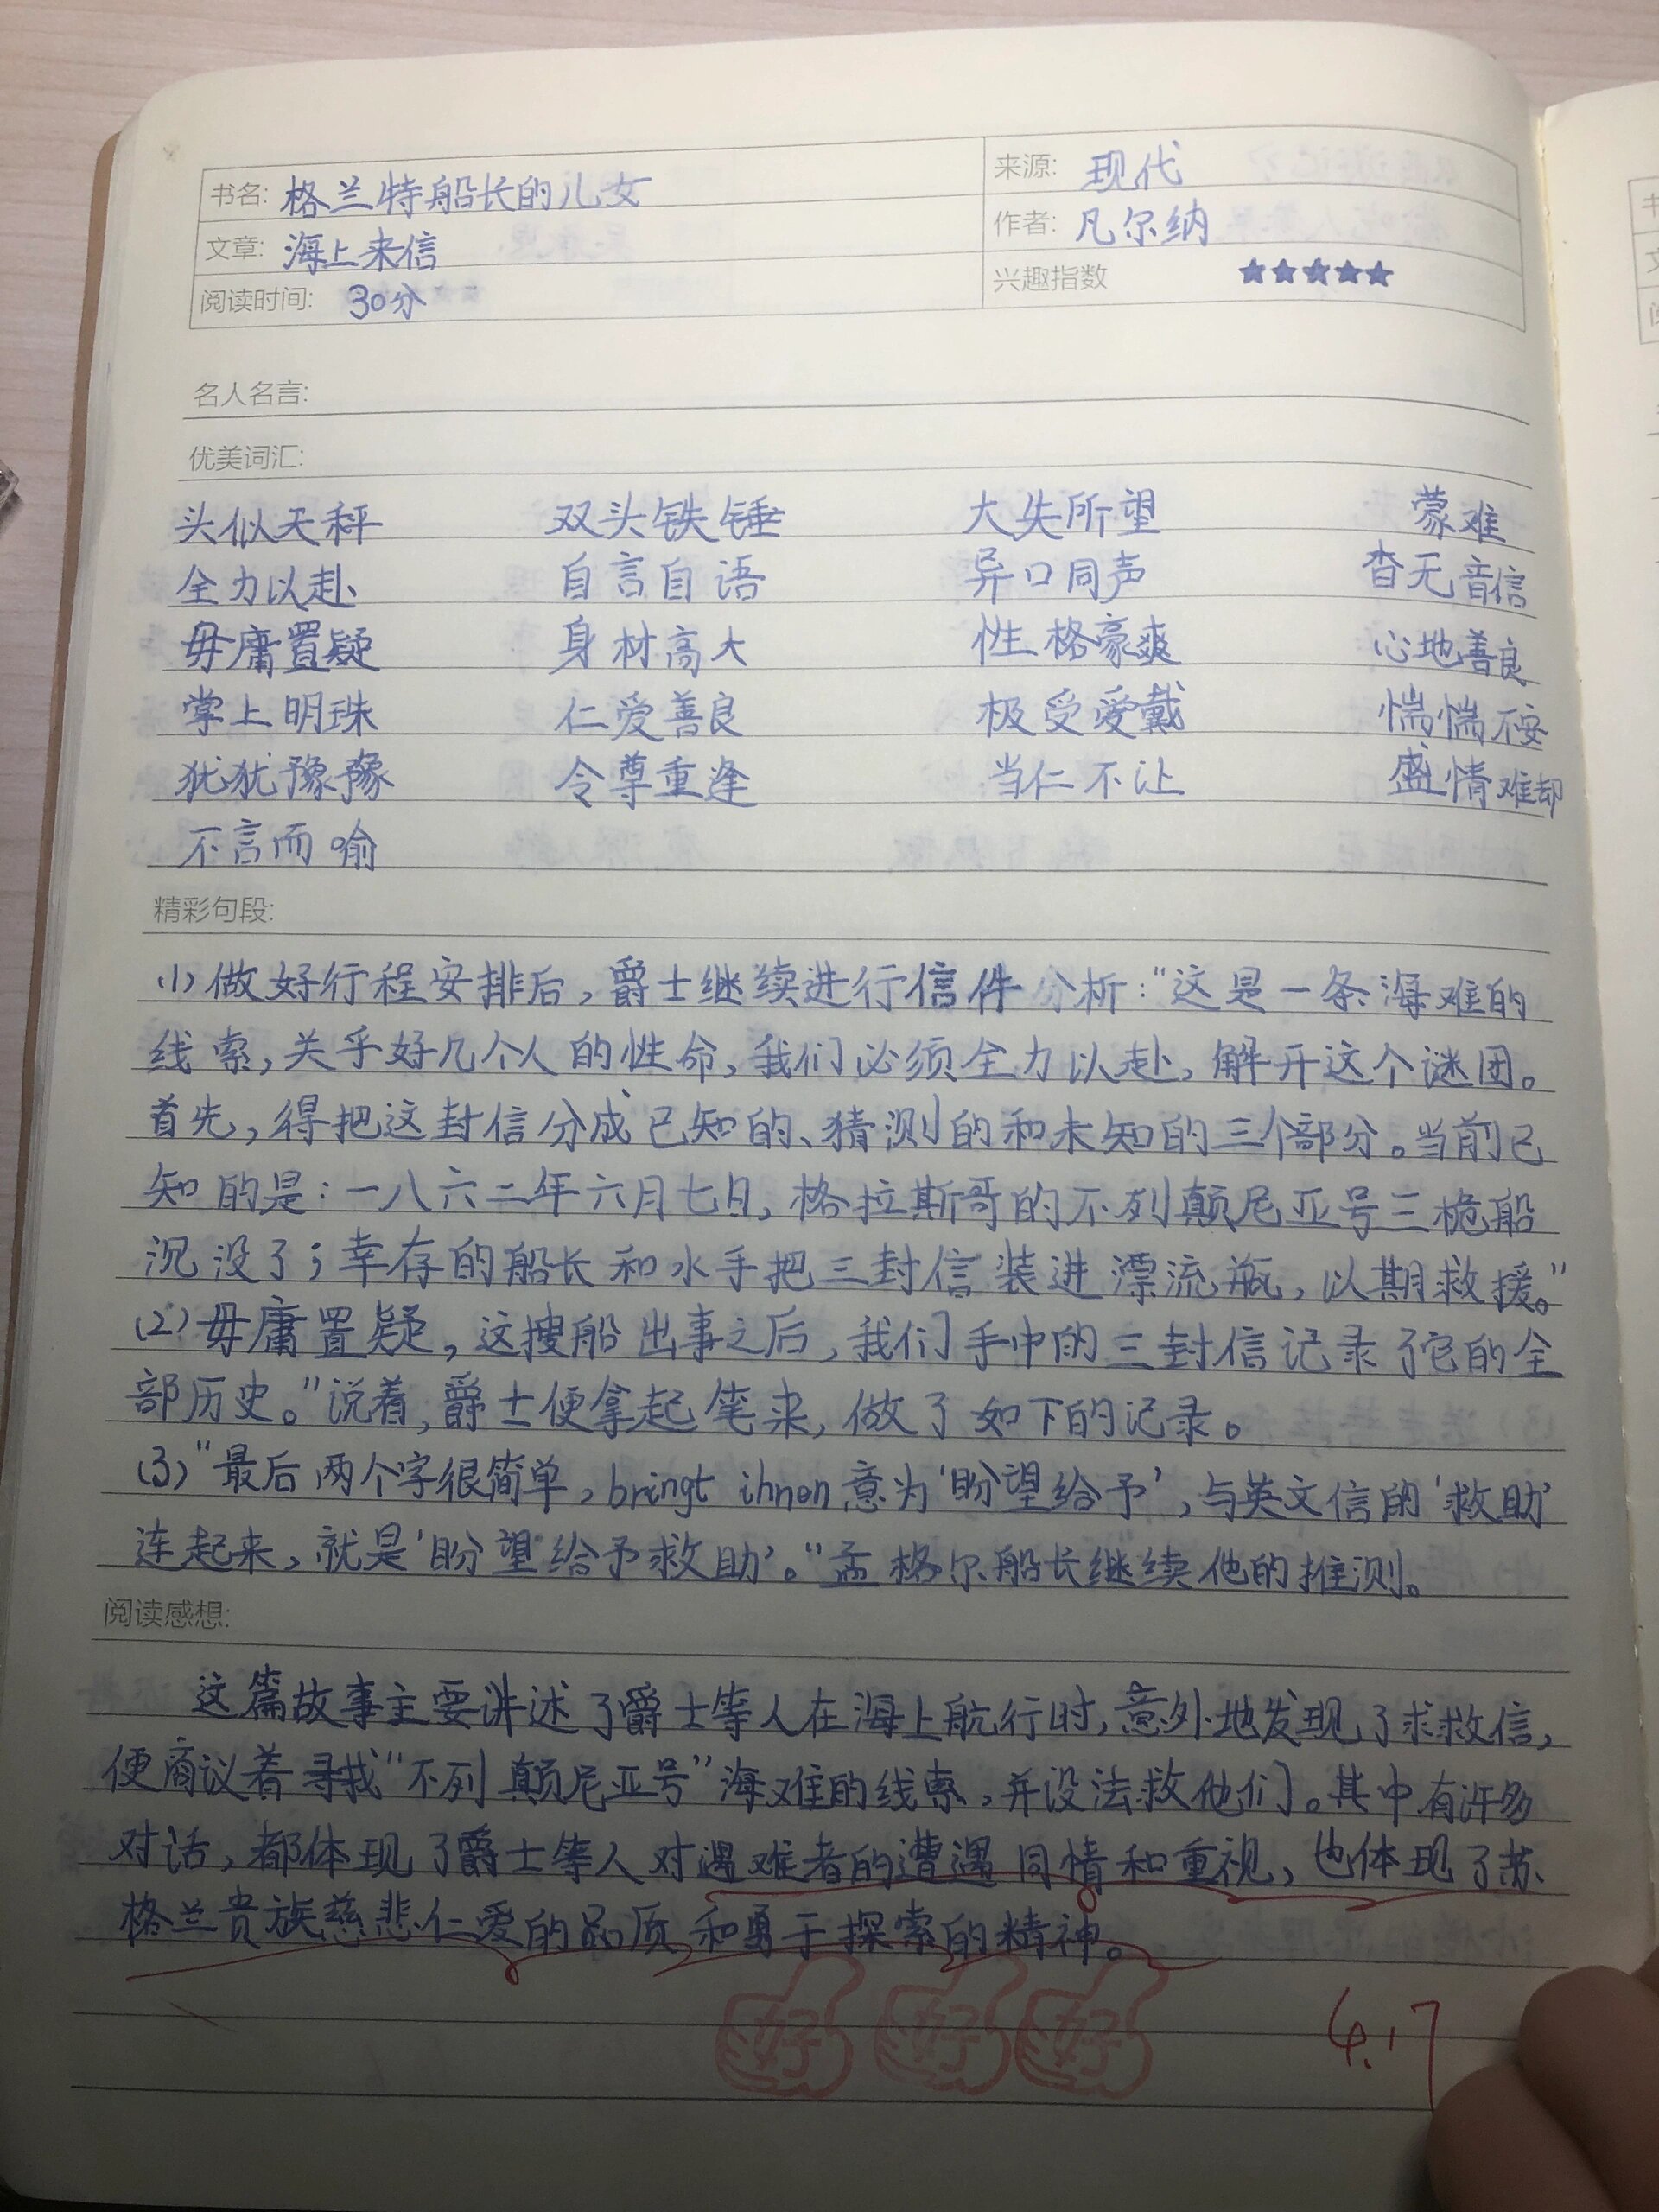 书名: 格兰特船长的儿女 来源: 现代
文章: 海上来信 作者: 凡尔纳
阅读时间: 30分 兴趣指数 ★★★★★
名人名言:
优美词汇:
头似天秤 双头铁锤 大失所望 蒙难
全力以赴 自言自语 异口同声 杳无音信
毋庸置疑 身材高大 性格豪爽 心地善良
掌上明珠 仁爱善良 极受爱戴 惴惴不安
犹犹豫豫 令尊重逢 当仁不让 盛情难却
不言而喻
精彩句段:
(1)做好行程安排后,爵士继续进行信件分析:“这是一条海难的
线索,关乎好几个人的性命,我们必须全力以赴,解开这个谜团。
首先,得把这封信分成已知的、猜测的和未知的三个部分。当前已
知的是:一八六二年六月七日,格拉斯哥的不列颠尼亚号三桅船
沉没了;幸存的船长和水手把三封信装进漂流瓶,以期救援。”
(2)毋庸置疑,这搜船出事之后,我们手中的三封信记录了它的全
部历史。”说着,爵士便拿起笔来,做了如下的记录。
(3)“最后两个字很简单,bringt ihnen意为‘盼望给予’,与英文信的‘救助’
连起来,就是‘盼望给予救助’。“孟格尔船长继续他的推测。
阅读感想:
这篇故事主要讲述了爵士等人在海上航行时,意外地发现了求救信,
便商议着寻找“不列颠尼亚号”海难的线索,并设法救他们。其中有许多
对话,都体现了爵士等人对遇难者的遭遇同情和重视,也体现了苏
格兰贵族慈悲仁爱的品质和勇于探索的精神。
好 好 好
6.17